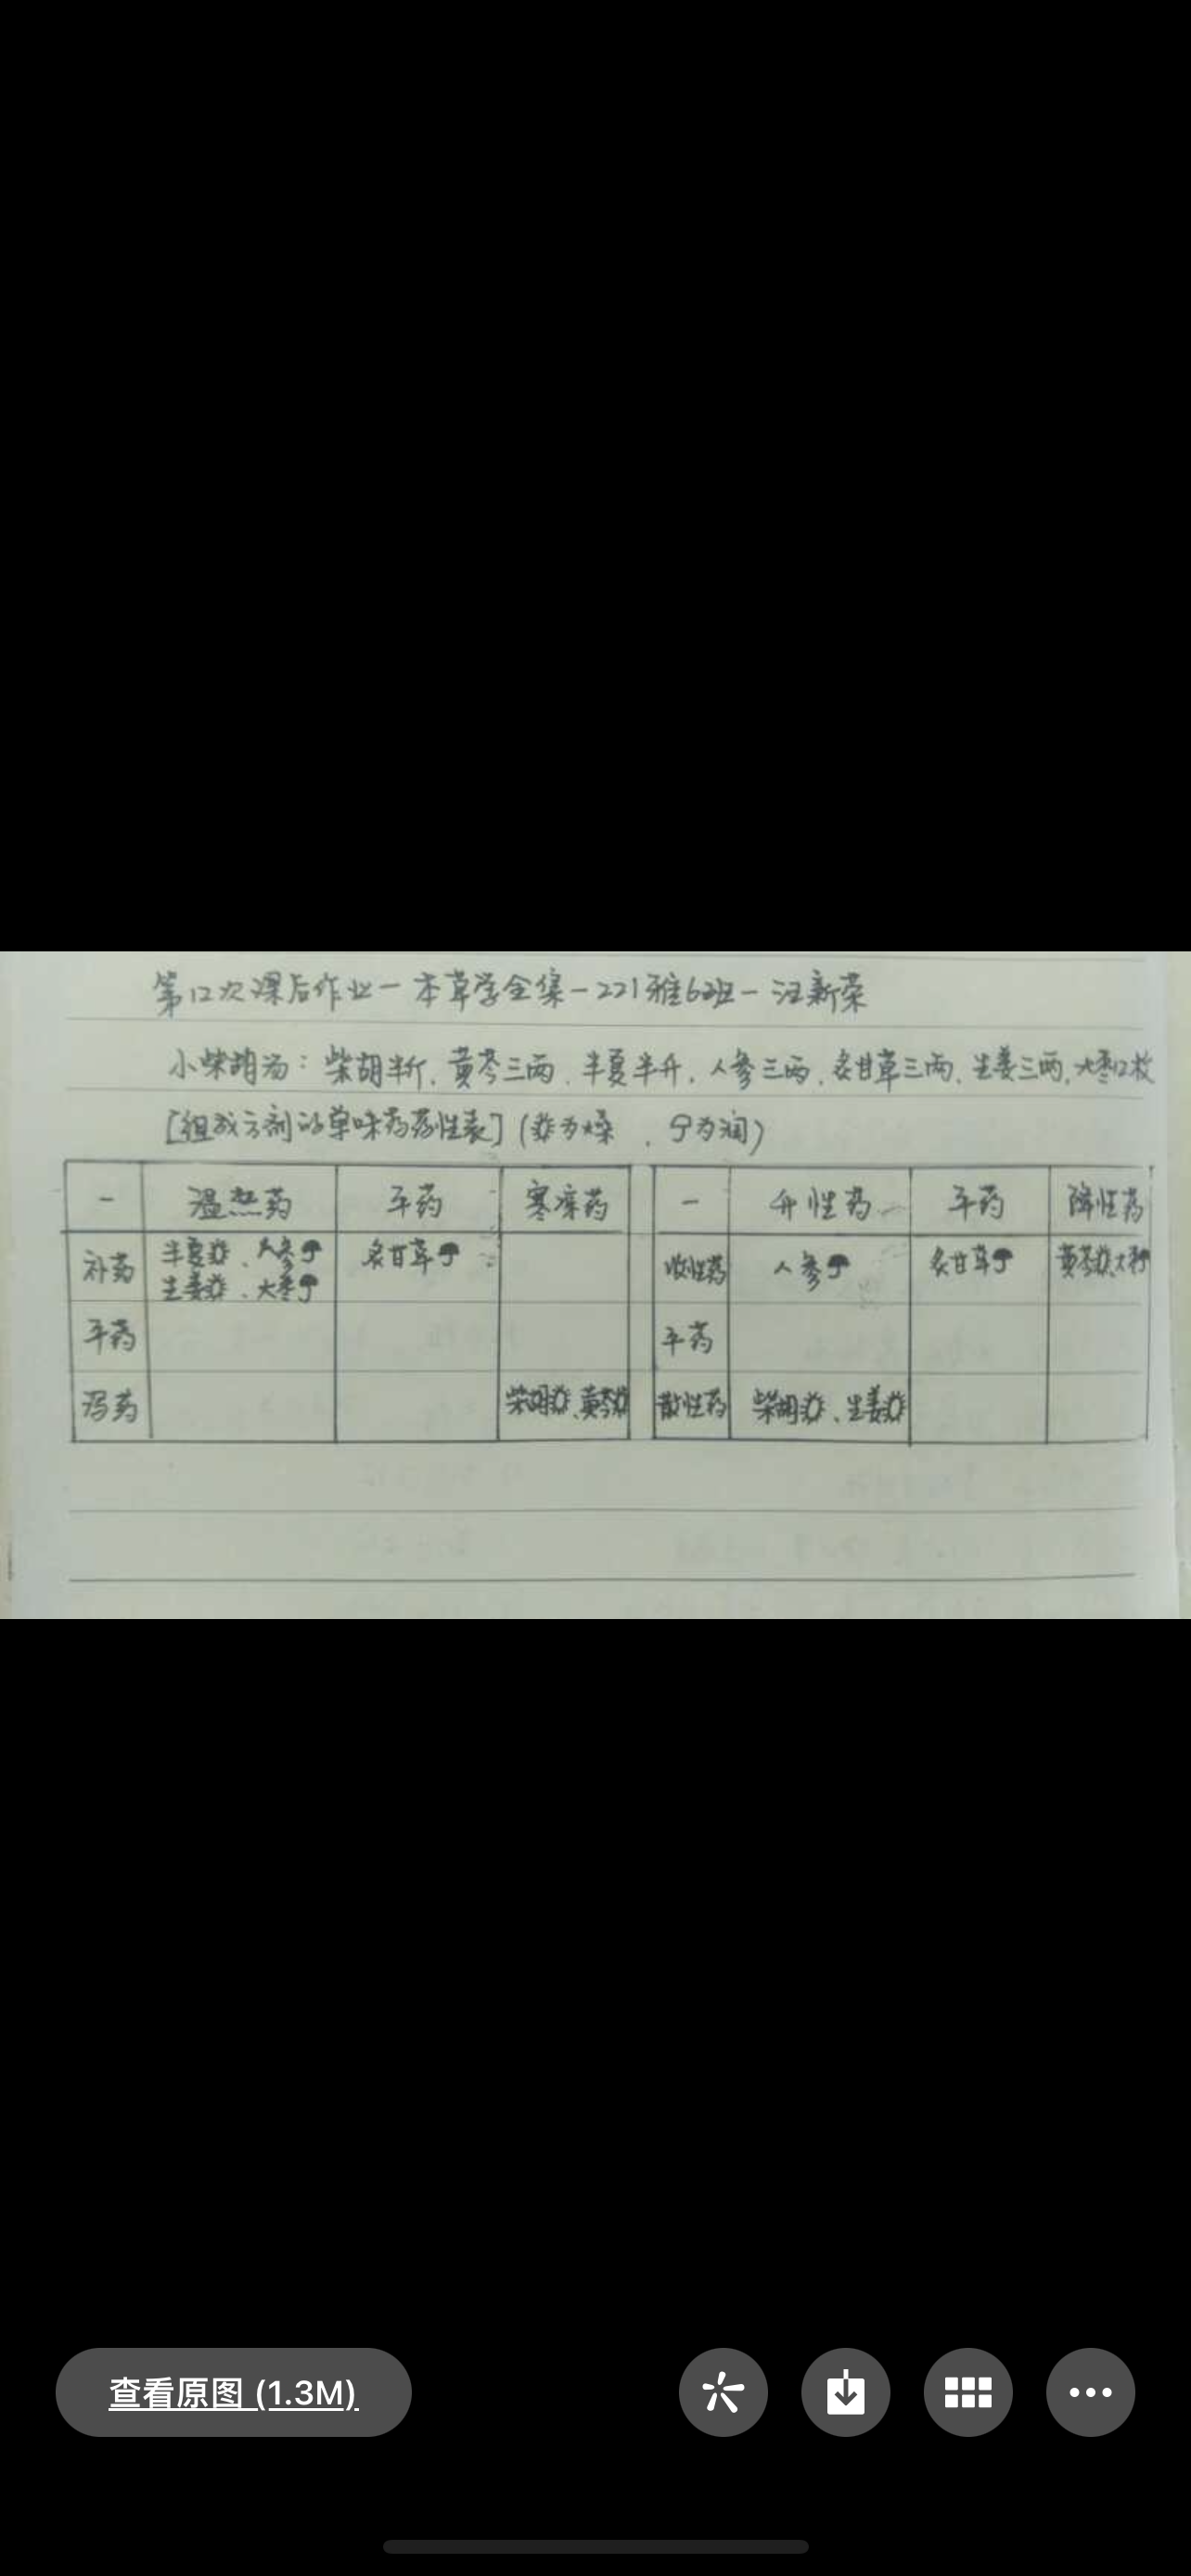 第12次课后作业一本草学全集一221雅6班一汪新荣
小柴胡汤：柴胡半斤、黄芩三两、半夏半升、人参三两、炙甘草三两、生姜三两、大枣12枚
[组成方剂的单味药药性表](为燥、为润)
一 温热药 平药 寒凉药 一 升性药 平药 降性药
补药 半夏、人参 炙甘草 收性药 人参 炙甘草 黄芩、大枣
生姜、大枣
平药 平药
泻药 柴胡、黄芩 散性药 柴胡、生姜
查看原图 (1.3M)